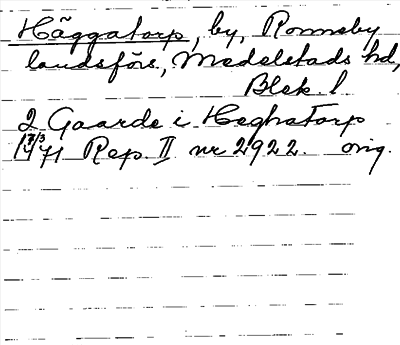 Häggatorp, by, Ronneby
landsförs, Medelstads hd,
Blek. l
2 Gaarde i Heghatorp
17/3 1471 Rep. II nr 2922. orig.